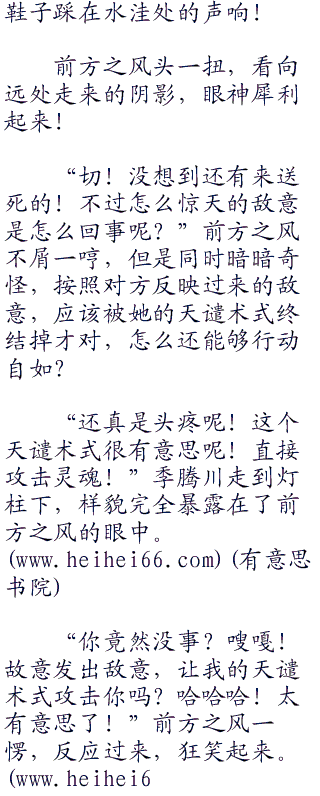 鞋子踩在水洼处的声响！
前方之风头一扭，看向
远处走来的阴影，眼神犀利
起来！
“切！没想到还有来送
死的！不过怎么惊天的敌意
是怎么回事呢？”前方之风
不屑一哼，但是同时暗暗奇
怪，按照对方反映过来的敌
意，应该被她的天谴术式终
结掉才对，怎么还能够行动
自如？
“还真是头疼呢！这个
天谴术式很有意思呢！直接
攻击灵魂！”季腾川走到灯
柱下，样貌完全暴露在了前
方之风的眼中。
(www.heihei66.com)(有意思
书院)
“你竟然没事？嗖嘎！
故意发出敌意，让我的天谴
术式攻击你吗？哈哈哈！太
有意思了！”前方之风一
愣，反应过来，狂笑起来。
(www.heihei6